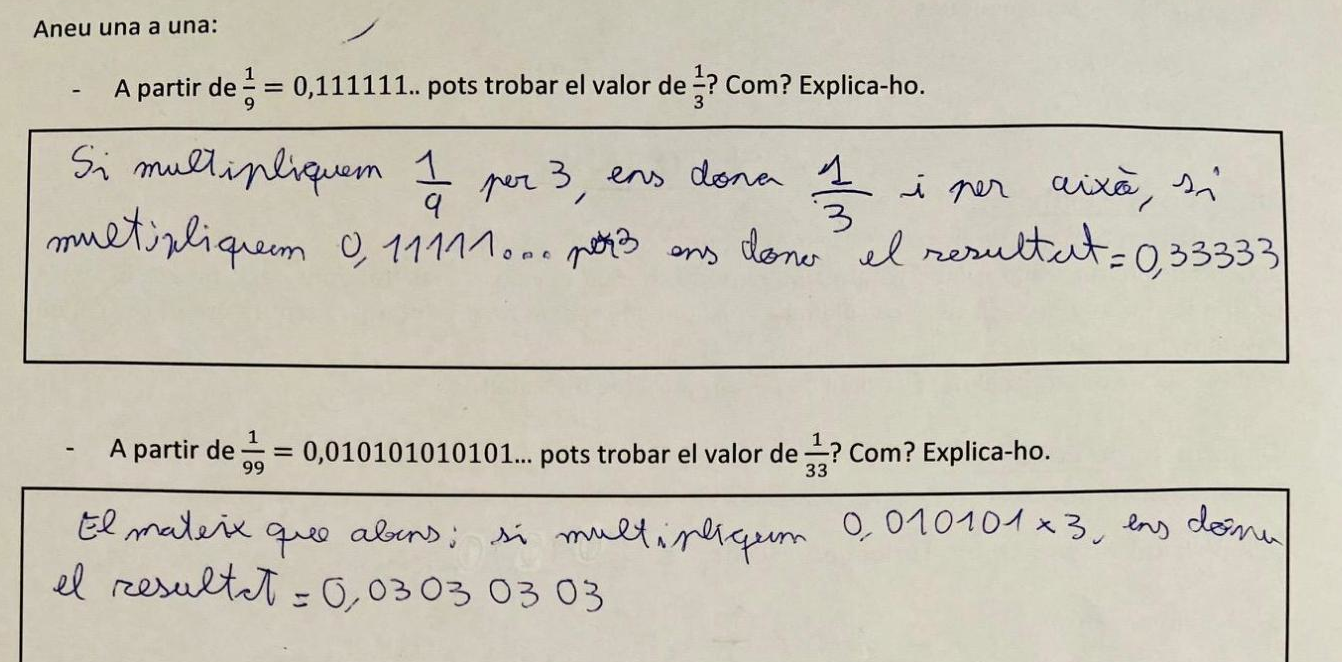 Aneu una a una:
- A partir de 1/9 = 0,111111.. pots trobar el valor de 1/3? Com? Explica-ho.
Si multipliquem 1/9 per 3, ens dona 1/3 i per això, si
multipliquem 0,11111... per 3 ens dona el resultat = 0,33333
- A partir de 1/99 = 0,010101010101... pots trobar el valor de 1/33? Com? Explica-ho.
El mateix que abans; si multipliquem 0,010101 x 3, ens dona
el resultat = 0,03 03 03 03